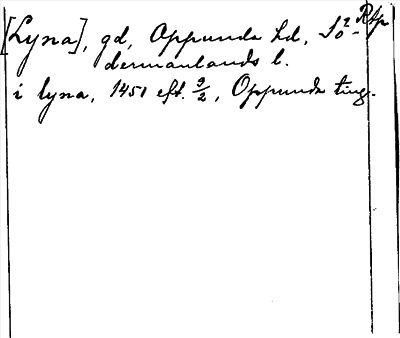 [Lyna], gd, Oppunda hd, Sö- Rbp
dermanlands l.
i lyna, 1451 eft. 2/2, Oppunda ting.